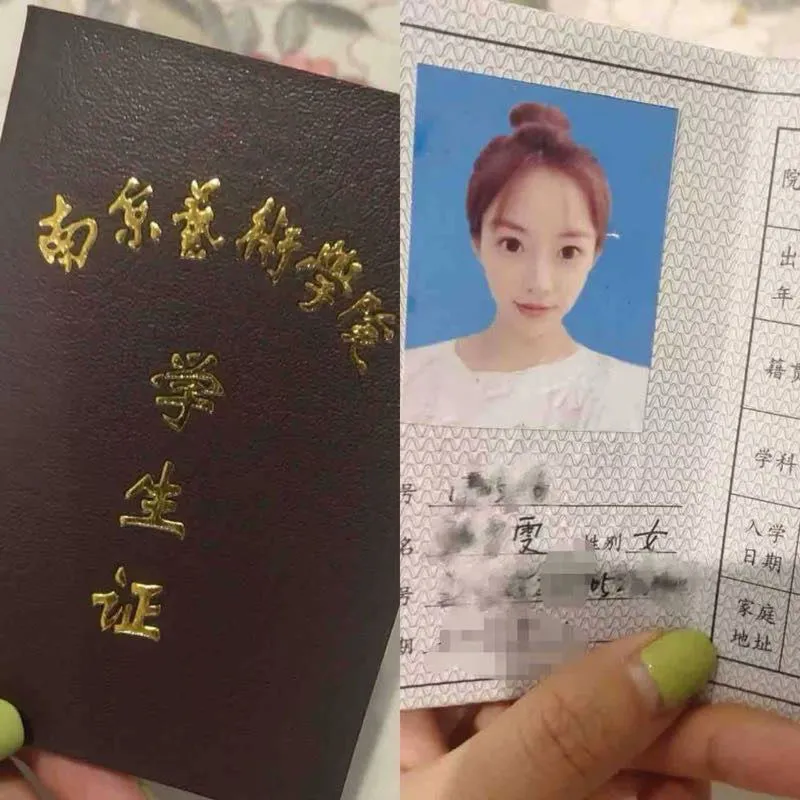 南京藝術學院
学
生
证
号
名 雯 性别 女
号 05
期
院
出
年
籍贯
学科
入学
日期
家庭
地址